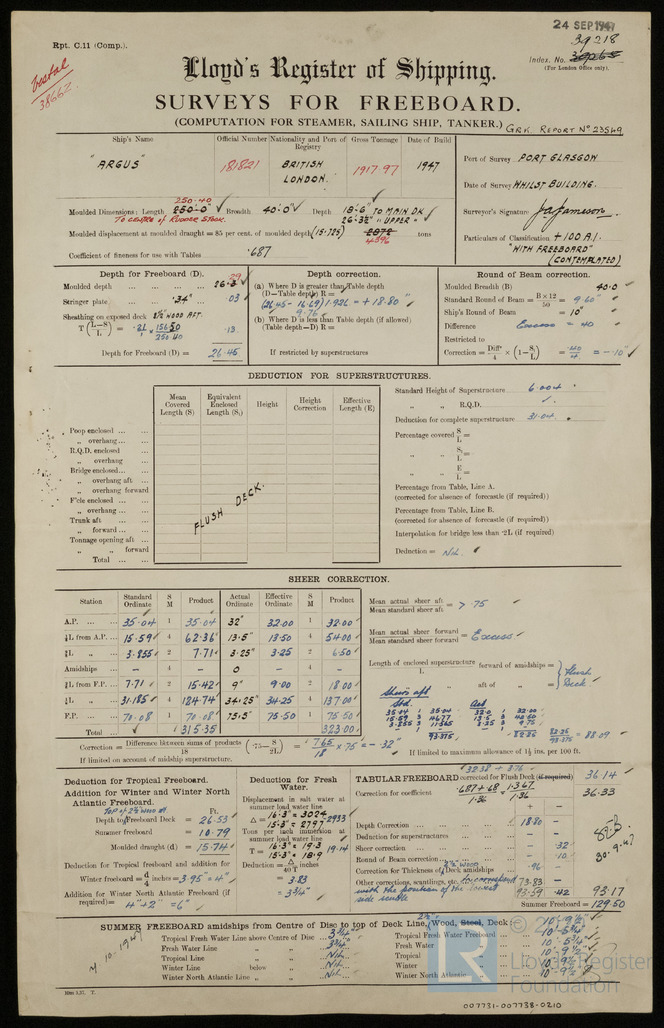 24 SEP 1947
Rpt. C.11 (Comp.).
39218
Index. No.
(For London Office only).
38662.
Lloyd's Register of Shipping.
SURVEYS FOR FREEBOARD.
(COMPUTATION FOR STEAMER, SAILING SHIP, TANKER.)
GRK. REPORT No 23549
Ship's Name Official Number Nationality and Port of Registry Gross Tonnage Date of Build
"ARGUS" 181821 BRITISH LONDON. 1917.97 1947
Port of Survey PORT GLASGOW
Date of Survey WHILST BUILDING.
Surveyor's Signature JaJameson.
Particulars of Classification +100 A.1.
"WITH FREEBOARD"
(CONTEMPLATED)
250.40
Moulded Dimensions: Length 250'0" Breadth 40'0" Depth 18'-6" TO MAIN DK
TO CENTRE OF RUDDER STOCK. 26'3½" " UPPER "
Moulded displacement at moulded draught = 85 per cent. of moulded depth (15.725) tons
4396
Coefficient of fineness for use with Tables .687
Depth for Freeboard (D).
Moulded depth 26.29
Stringer plate .34" .03
Sheathing on exposed deck 2½" WOOD AFT.
T (L-S/L) = .21 × 156.50 / 250.40 .13
Depth for Freeboard (D) = 26.45
Depth correction.
(a) Where D is greater than Table depth
(D-Table depth) R =
(26.45 - 16.69) 1.926 = + 18.80
9.76
(b) Where D is less than Table depth (if allowed)
(Table depth-D) R =
If restricted by superstructures
Round of Beam correction.
Moulded Breadth (B) 40.0
Standard Round of Beam = B×12/50 = 9.60"
Ship's Round of Beam = 10"
Difference Excess = .40
Restricted to
Correction = Diff/4 × (1-S/L) = .40/4 = -.10"
DEDUCTION FOR SUPERSTRUCTURES.
Mean Covered Length (S) Equivalent Enclosed Length (S₁) Height Height Correction Effective Length (E)
Poop enclosed
" overhang
R.Q.D. enclosed
" overhang
Bridge enclosed
" overhang aft
" overhang forward
F'cle enclosed
" overhang
Trunk aft
" forward
Tonnage opening aft
" " forward
Total
FLUSH DECK.
Standard Height of Superstructure 6.004
" " R.Q.D.
Deduction for complete superstructure 31.04.
Percentage covered S/L =
" " S₁/L =
" " E/L =
Percentage from Table, Line A.
(corrected for absence of forecastle (if required))
Percentage from Table, Line B.
(corrected for absence of forecastle (if required))
Interpolation for bridge less than ·2L (if required)
Deduction = Nil.
SHEER CORRECTION.
Station Standard Ordinate S M Product Actual Ordinate Effective Ordinate S M Product
A.P. 35.04 1 35.04 32" 32.00 1 32.00
⅙L from A.P. 15.59 4 62.36 13.5" 13.50 4 54.00
⅓L " 3.855 2 7.71 3.25" 3.25 2 6.50
Amidships - 4 - 0 - 4 -
⅓L from F.P. 7.71 2 15.42 9" 9.00 2 18.00
⅙L " 31.185 4 124.74 34.25" 34.25 4 137.00
F.P. 70.08 1 70.08 75.5" 75.50 1 75.50
Total 315.35 323.00
Mean actual sheer aft / Mean standard sheer aft = > .75
Mean actual sheer forward / Mean standard sheer forward = Excess
Length of enclosed superstructure / L forward of amidships =
" aft of " =
Flush Deck
Sheer aft
Std. Act
93.375. 82.25 82.25/93.375 = 88.09
Correction = Difference between sums of products / 18 (·75 - S/2L) = 7.65/18 × .75 = -.32"
If limited on account of midship superstructure.
If limited to maximum allowance of 1½ ins. per 100 ft.
Deduction for Tropical Freeboard.
Addition for Winter and Winter North Atlantic Freeboard.
Top of 2½ wood dk Ft.
Depth to Freeboard Deck = 26.53
Summer freeboard = 10.79
Moulded draught (d) = 15.74
Deduction for Tropical freeboard and addition for
Winter freeboard = d/4 inches = 3.95" = 4"
Addition for Winter North Atlantic Freeboard (if required) =
4"+2" = 6"
Deduction for Fresh Water.
Displacement in salt water at summer load water line
Δ = 16'.3" = 3024
15'.3" = 2797 2933
Tons per inch immersion at summer load water line
T = 16'.3" = 19.3
15'.3" = 18.9 19.14
Deduction = Δ/40T inches
= 3.83
= 3¾"
TABULAR FREEBOARD corrected for Flush Deck (if required)
32.38 + 3.76 36.14
Correction for coefficient .687+.68/1.36 1.367/1.36 36.33
+ -
Depth Correction 18.80 -
Deduction for superstructures - -
Sheer correction - .32
Round of Beam correction - .10
Correction for Thickness of Deck amidships 2½ wood .96 -
Other corrections, scantlings, etc. to correspond 73.83 -
with the position of the lowest side scuttle
93.59 .42 93.17
Summer Freeboard = 129.50
30.9.47
SUMMER FREEBOARD amidships from Centre of Disc to top of Deck Line, 2½" (Wood, Steel, Deck:- 10'-9½"
Tropical Fresh Water Line above Centre of Disc 3¾"
Fresh Water Line " 3¾"
Tropical Line " Nil.
Winter Line below " Nil.
Winter North Atlantic Line " " Nil.
Tropical Fresh Water Freeboard 10'-5¾"
Fresh Water " 10'-5¾"
Tropical " 10'-9½"
Winter " 10'-9½"
Winter North Atlantic " 10'-9½"
7.10.1947
© 2
LR
Lloyd's Register
Foundation
007731-007738-0210